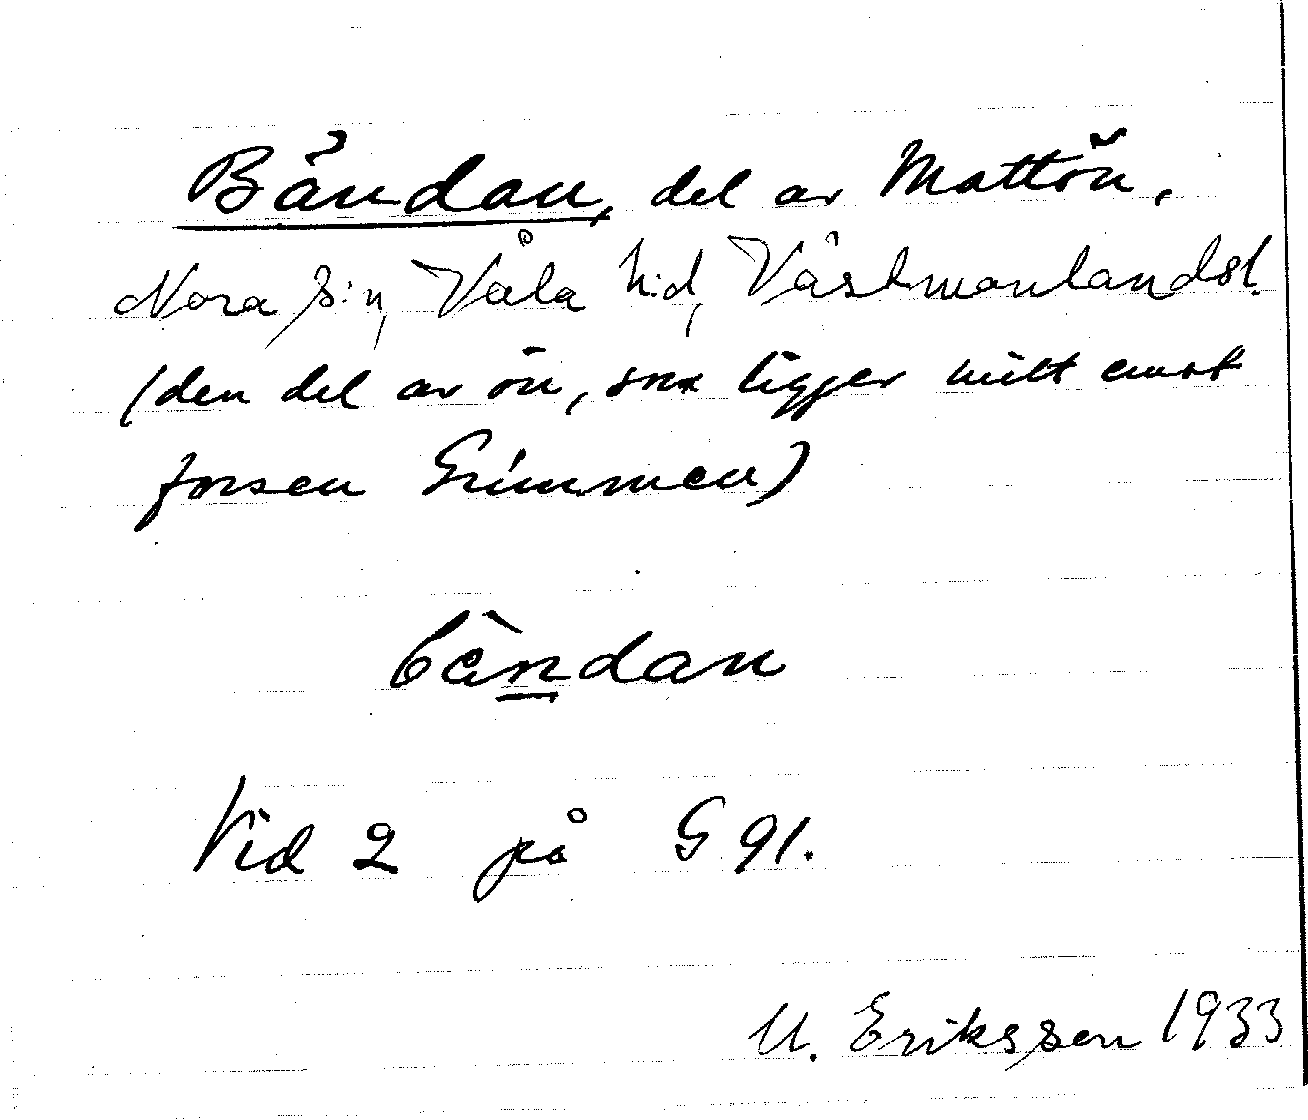 Båndan, del av Mattön,
Nora s:n, Våla h:d, Västmanlandsl.
(den del av ön, som ligger mitt emot
forsen Grimmen)
bàndan
Vid 2 på G 91.
M. Eriksson 1933